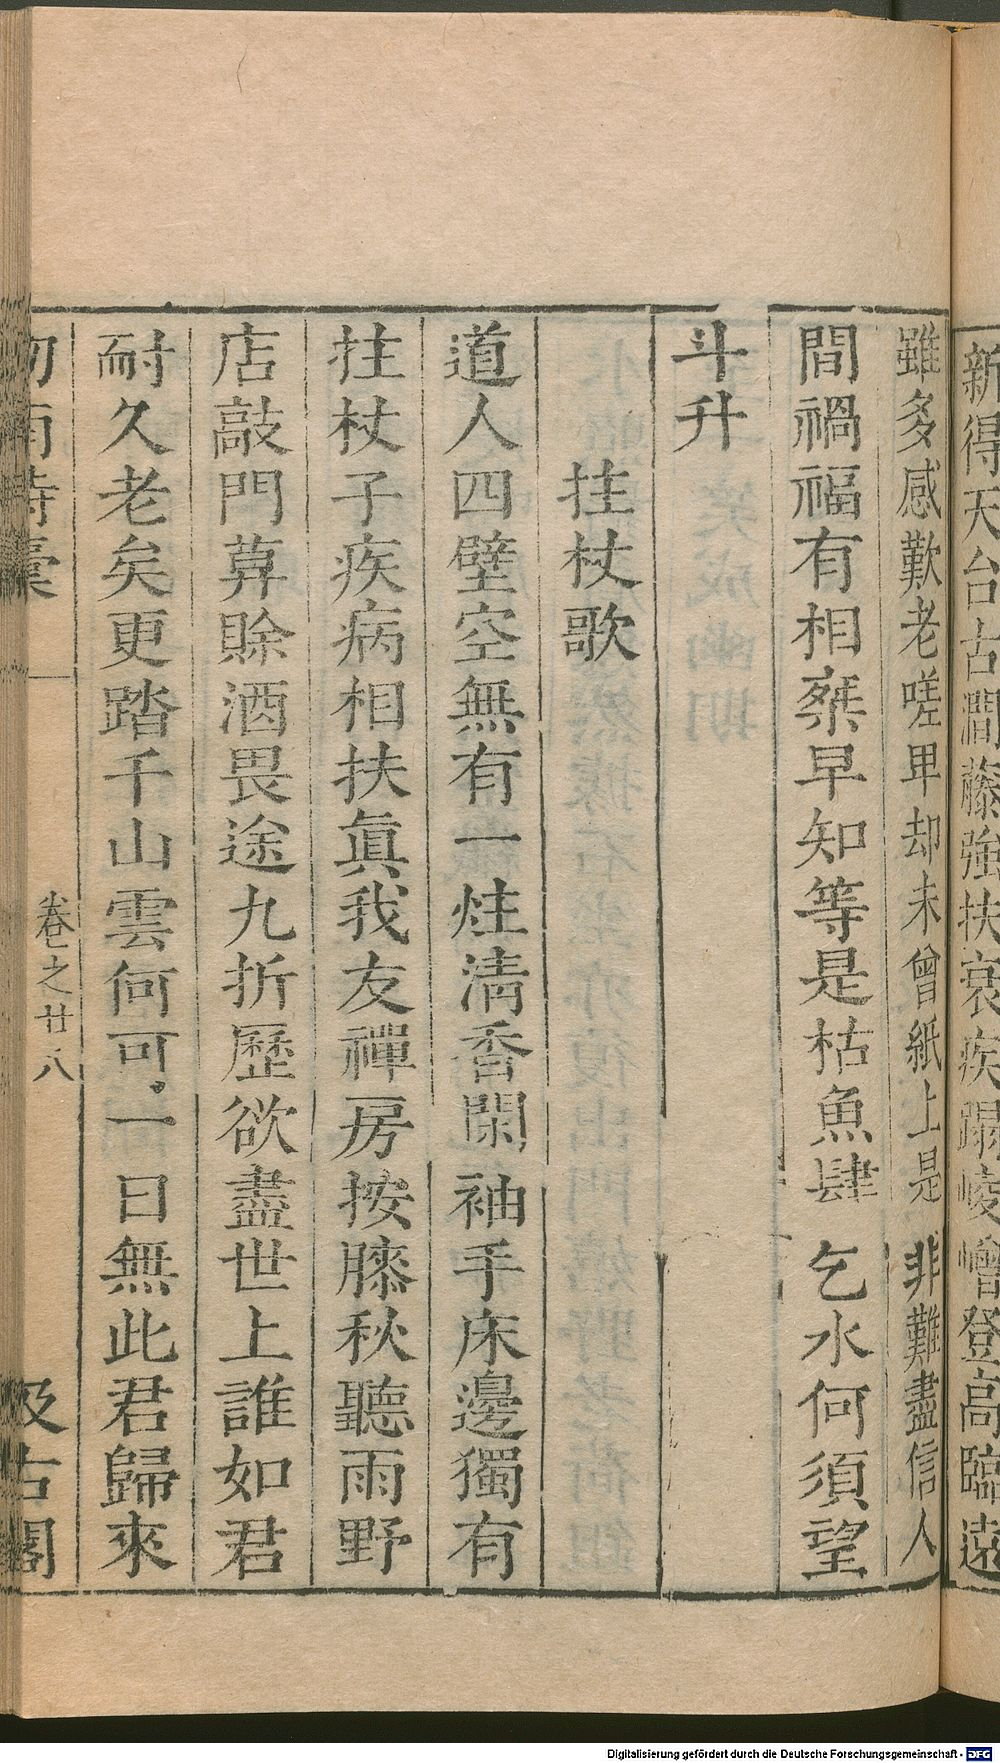 新得天台古澗藤強扶衰疾躡崚嶒登高臨遠
雖多感歎老嗟卑却未曾紙上是非難盡信人
間禍福有相乗早知等是枯魚肆乞水何須望
斗升
拄杖歌
道人四壁空無有一炷清香閑袖手床邊獨有
拄杖子疾病相扶眞我友禪房按膝秋聽雨野
店敲門算賒酒畏途九折歷欲盡世上誰如君
耐久老矣更踏千山雲何可一日無此君歸來
劒南詩稾
卷之廿八
汲古閣
Digitalisierung gefördert durch die Deutsche Forschungsgemeinschaft - DFG